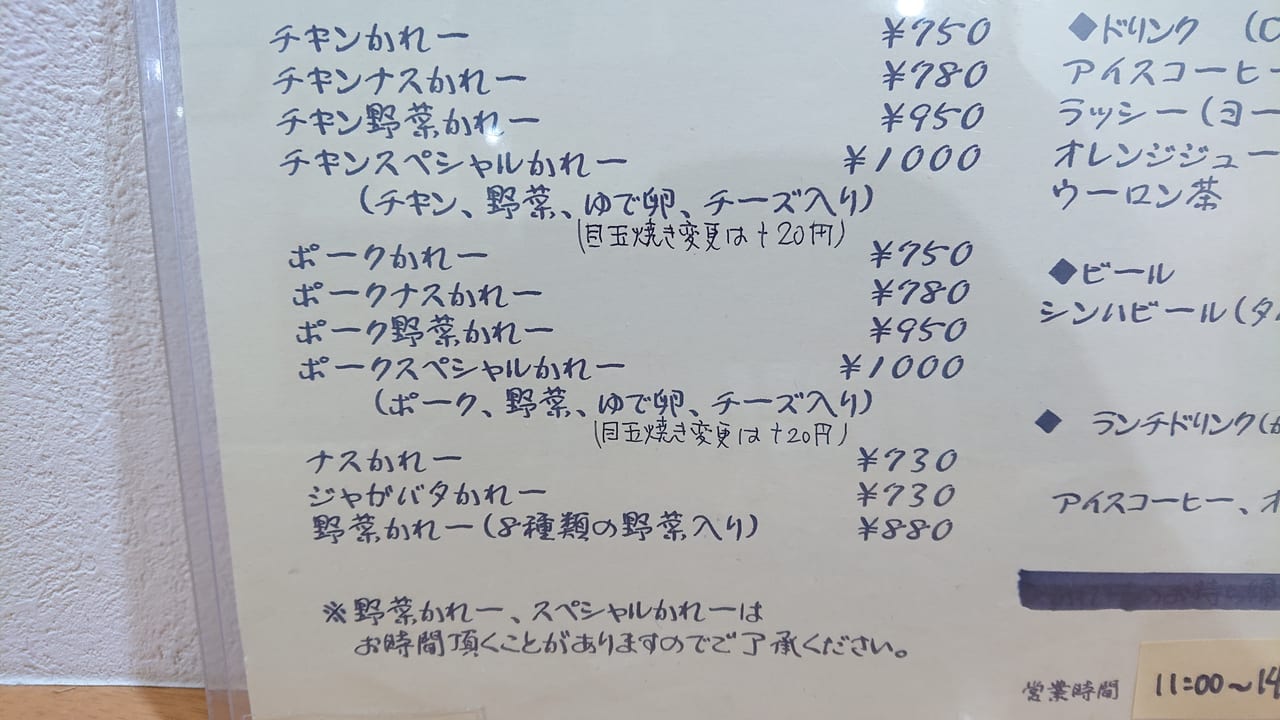 チキンかれー ¥750
チキンナスかれー ¥780
チキン野菜かれー ¥950
チキンスペシャルかれー ¥1000
(チキン、野菜、ゆで卵、チーズ入り)
(目玉焼き変更は+20円)
ポークかれー ¥750
ポークナスかれー ¥780
ポーク野菜かれー ¥950
ポークスペシャルかれー ¥1000
(ポーク、野菜、ゆで卵、チーズ入り)
(目玉焼き変更は+20円)
ナスかれー ¥730
ジャガバタかれー ¥730
野菜かれー(8種類の野菜入り) ¥880
※野菜かれー、スペシャルかれーは
お時間頂くことがありますのでご了承ください。
◆ドリンク
アイスコーヒー
ラッシー(ヨー
オレンジジュー
ウーロン茶
◆ビール
シンハビール(タ
◆ ランチドリンク(
アイスコーヒー、オ
営業時間 11:00~14